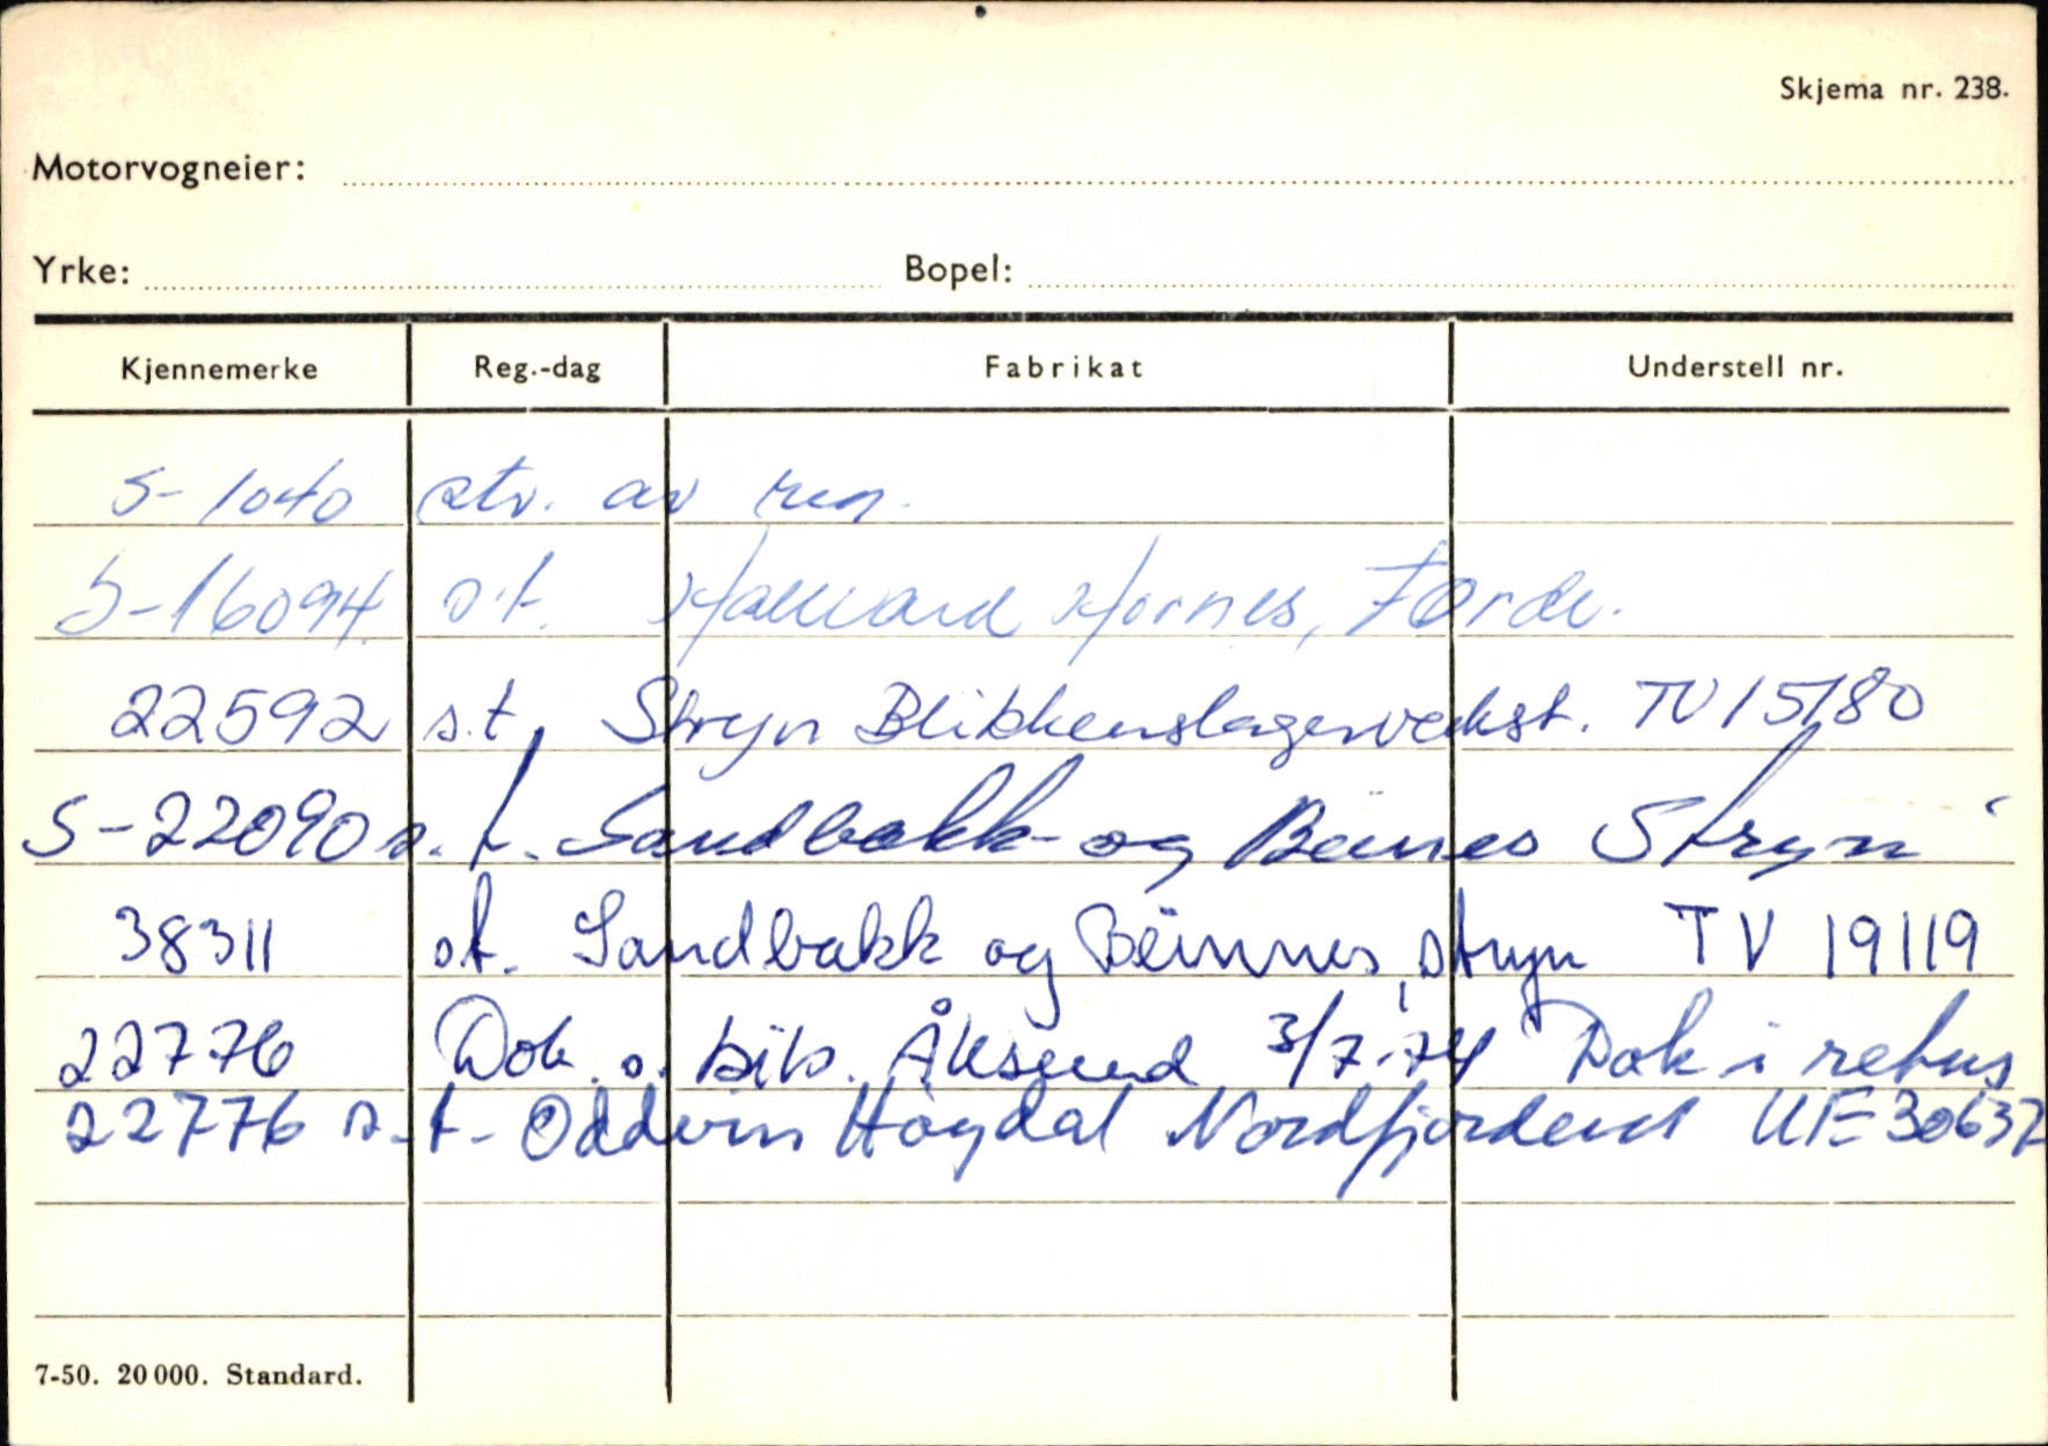 Skjema nr. 238.
Motorvogneier:
Yrke: Bopel:
Kjennemerke Reg.-dag Fabrikat Understell nr.
S-1040 utv. av
S-16094. s.t. Hallvard Hornes, Førde.
22592 s.t. Stryn Blikkenslagerverkst. TV 15180
S-22090 s.t. Sandbakk og Beines Stryn
38311 st. Sandbakk og Beinnes, Stryn TV 19119
22776 Dok. s. bils. Ålesund 3/7-74 Dok i retur
22776 s.t. Oddvin Høydal Nordfjordeid UE 30637
7-50. 20 000. Standard.